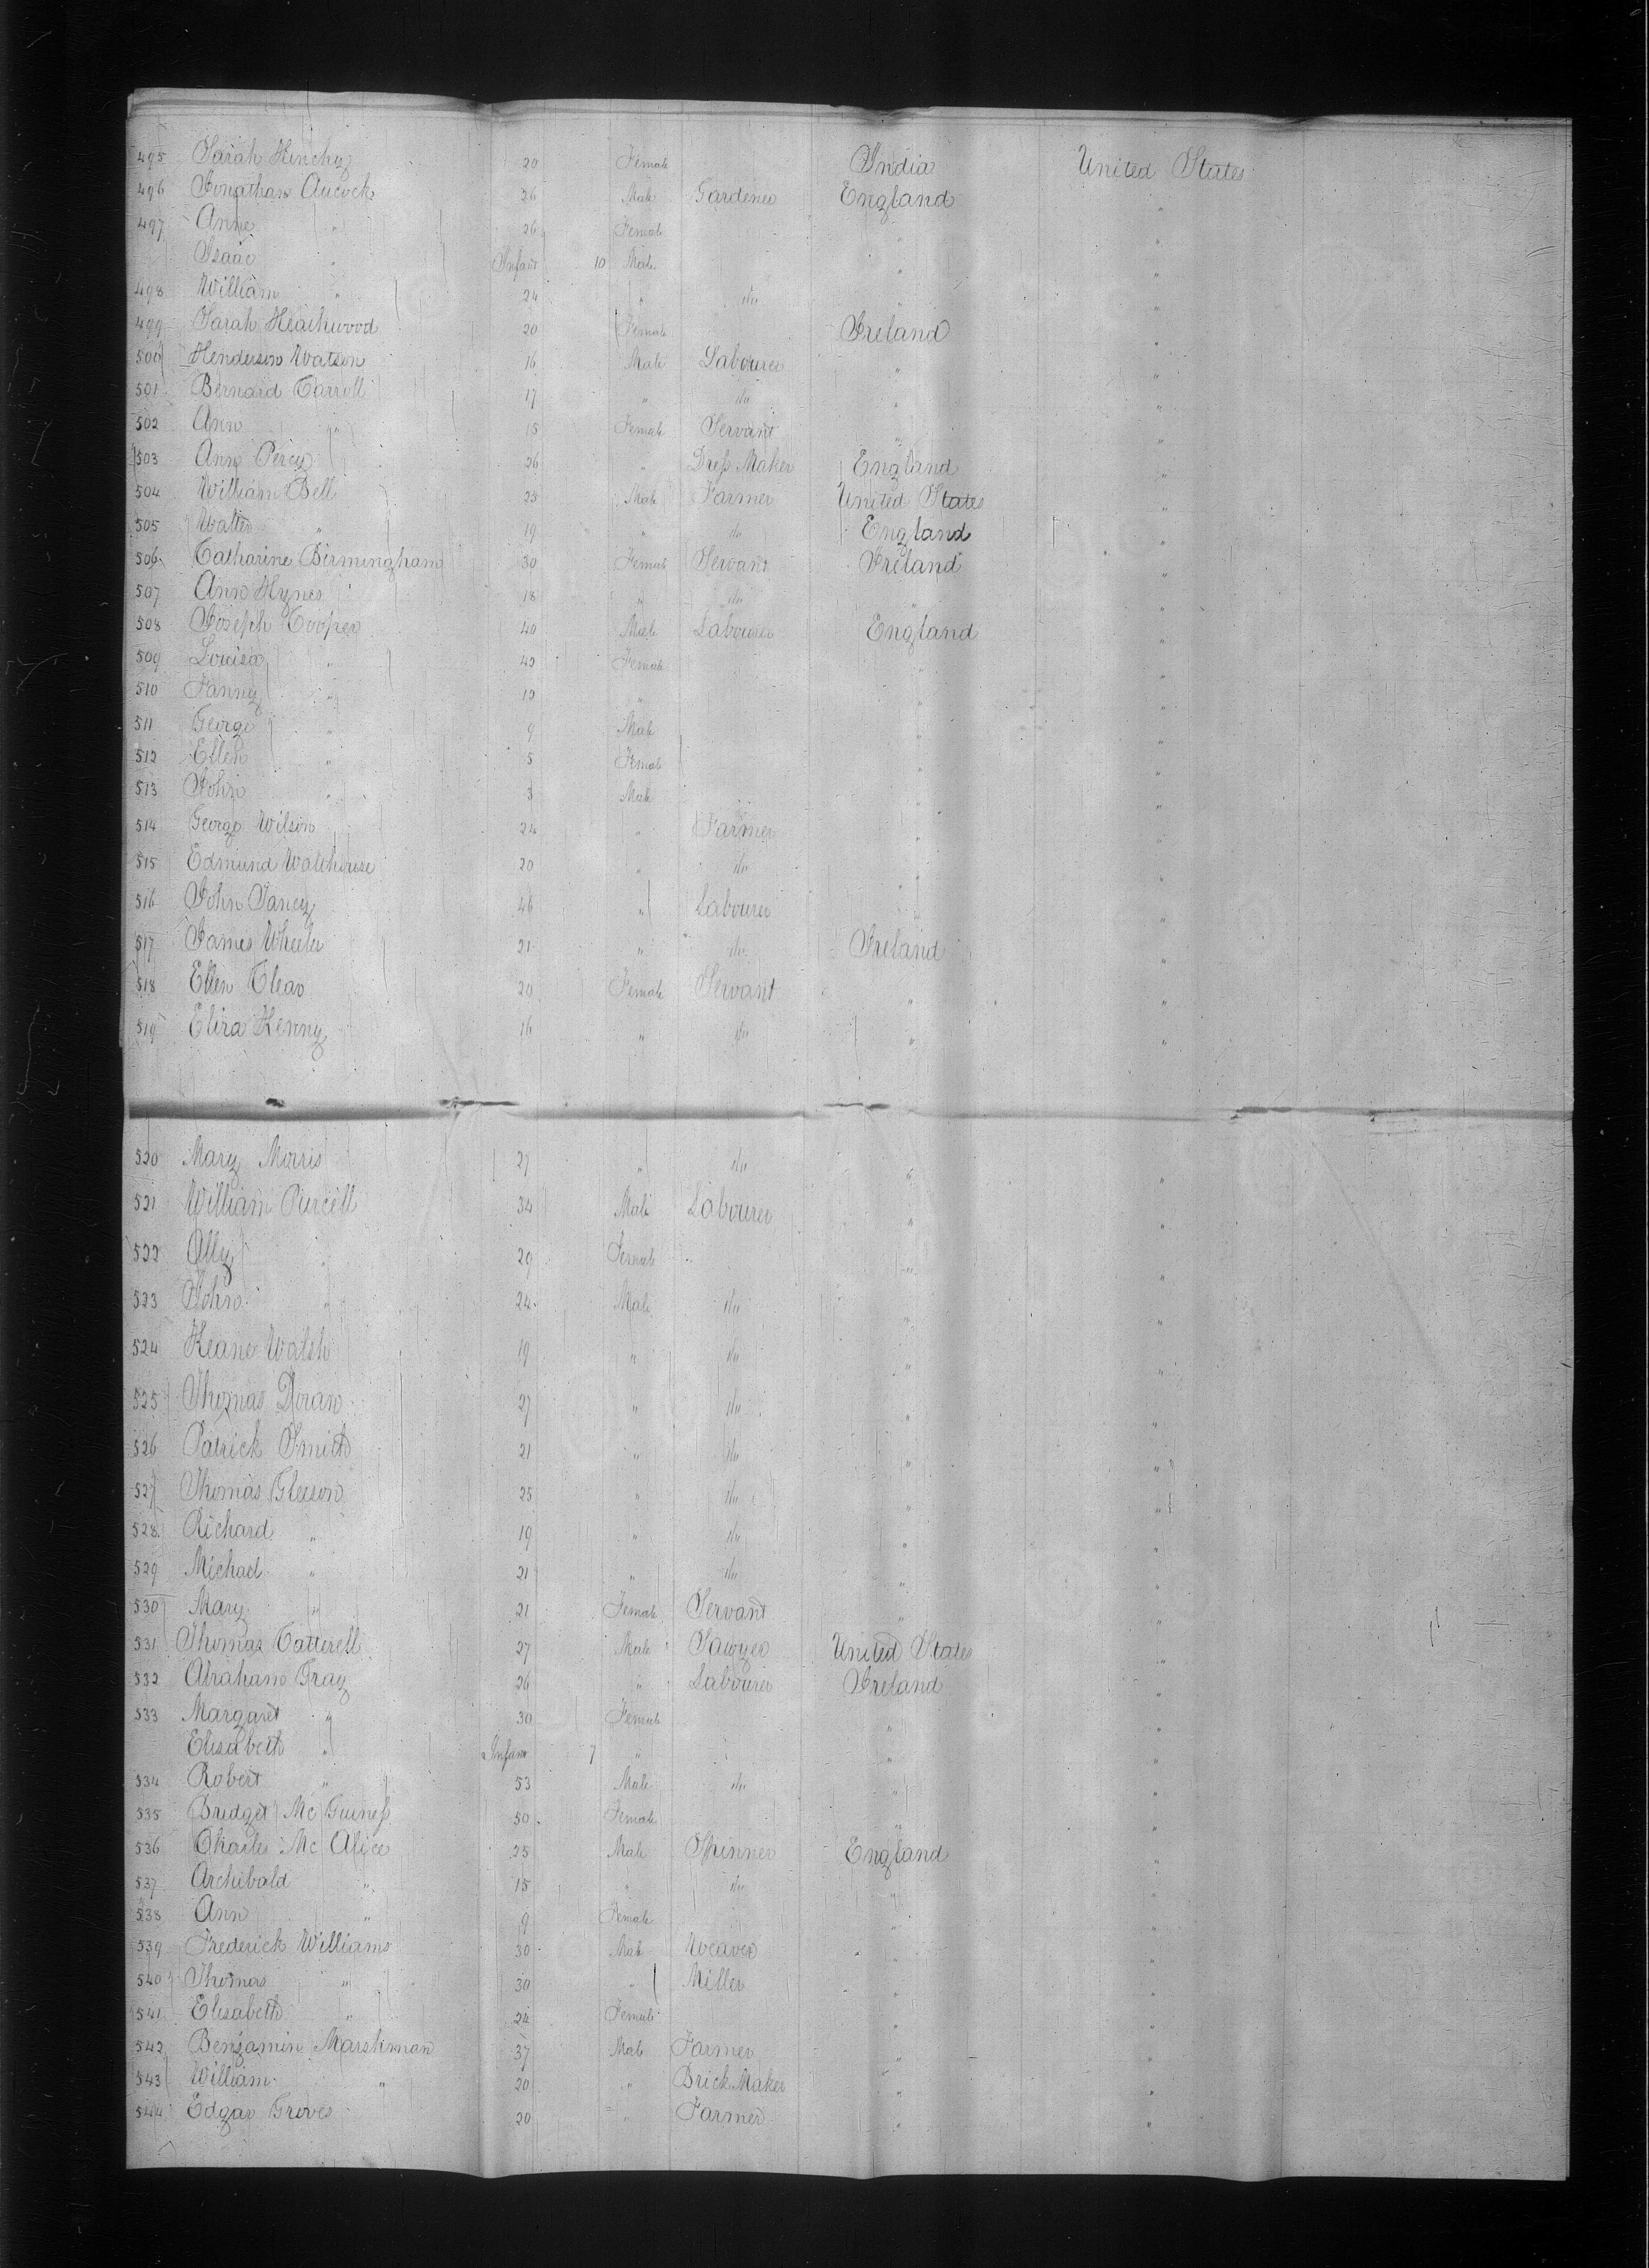 495 Sarah Hinchy 20 Female India United States
496 Jonathan Aucock 26 Male Gardener England "
497 Anne " 26 Female " "
Isaac " Infant 10 Male " "
498 William " 24 " do " "
499 Sarah Heathwood 20 Female Ireland "
500 Henderson Watson 16 Male Labourer " "
501 Bernard Carroll 17 " do " "
502 Ann " 15 Female Servant " "
503 Ann Percy 26 " Dress Maker England "
504 William Bell 23 Male Farmer United States "
505 Walter " 19 " do England "
506 Catharine Birmingham 30 Female Servant Ireland "
507 Ann Hynes 18 " do " "
508 Joseph Cooper 40 Male Labourer England "
509 Louisa " 40 Female " "
510 Fanny " 10 " " "
511 George " 9 Male " "
512 Ellen " 5 Female " "
513 John " 3 Male " "
514 George Wilson 24 " Farmer " "
515 Edmund Walthouse 20 " do " "
516 John 46 " Labourer " "
517 James Wheeler 21 " do Ireland "
518 Ellen Clear 20 Female Servant " "
519 Eliza Kenny 16 " do " "
520 Mary Morris 27 " do " "
521 William Purcell 34 Male Labourer " "
522 Ally " 29 Female " "
523 John " 24 Male do " "
524 Keane Walsh 19 " do " "
525 Thomas Doran 27 " do " "
526 Patrick Smith 21 " do " "
527 Thomas Gleeson 25 " do " "
528 Richard " 19 " do " "
529 Michael " 21 " do " "
530 Mary " 21 Female Servant " "
531 Thomas Catterell 27 Male Sawyer United States "
532 Abraham Gray 26 " Labourer Ireland "
533 Margaret " 30 Female " "
Elisabeth " Infant 7 " " "
534 Robert " 53 Male do " "
535 Bridget Mc Guiness 50 Female " "
536 Charles Mc Alice 25 Male Spinner England "
537 Archibald " 15 " do " "
538 Ann " 9 Female " "
539 Frederick Williams 30 Male Weaver " "
540 Thomas " 30 " Miller " "
541 Elisabeth " 24 Female " "
542 Benjamin Marshman 37 Male Farmer " "
543 William " 20 " Brick Maker " "
544 Edgar Groves 20 " Farmer " "